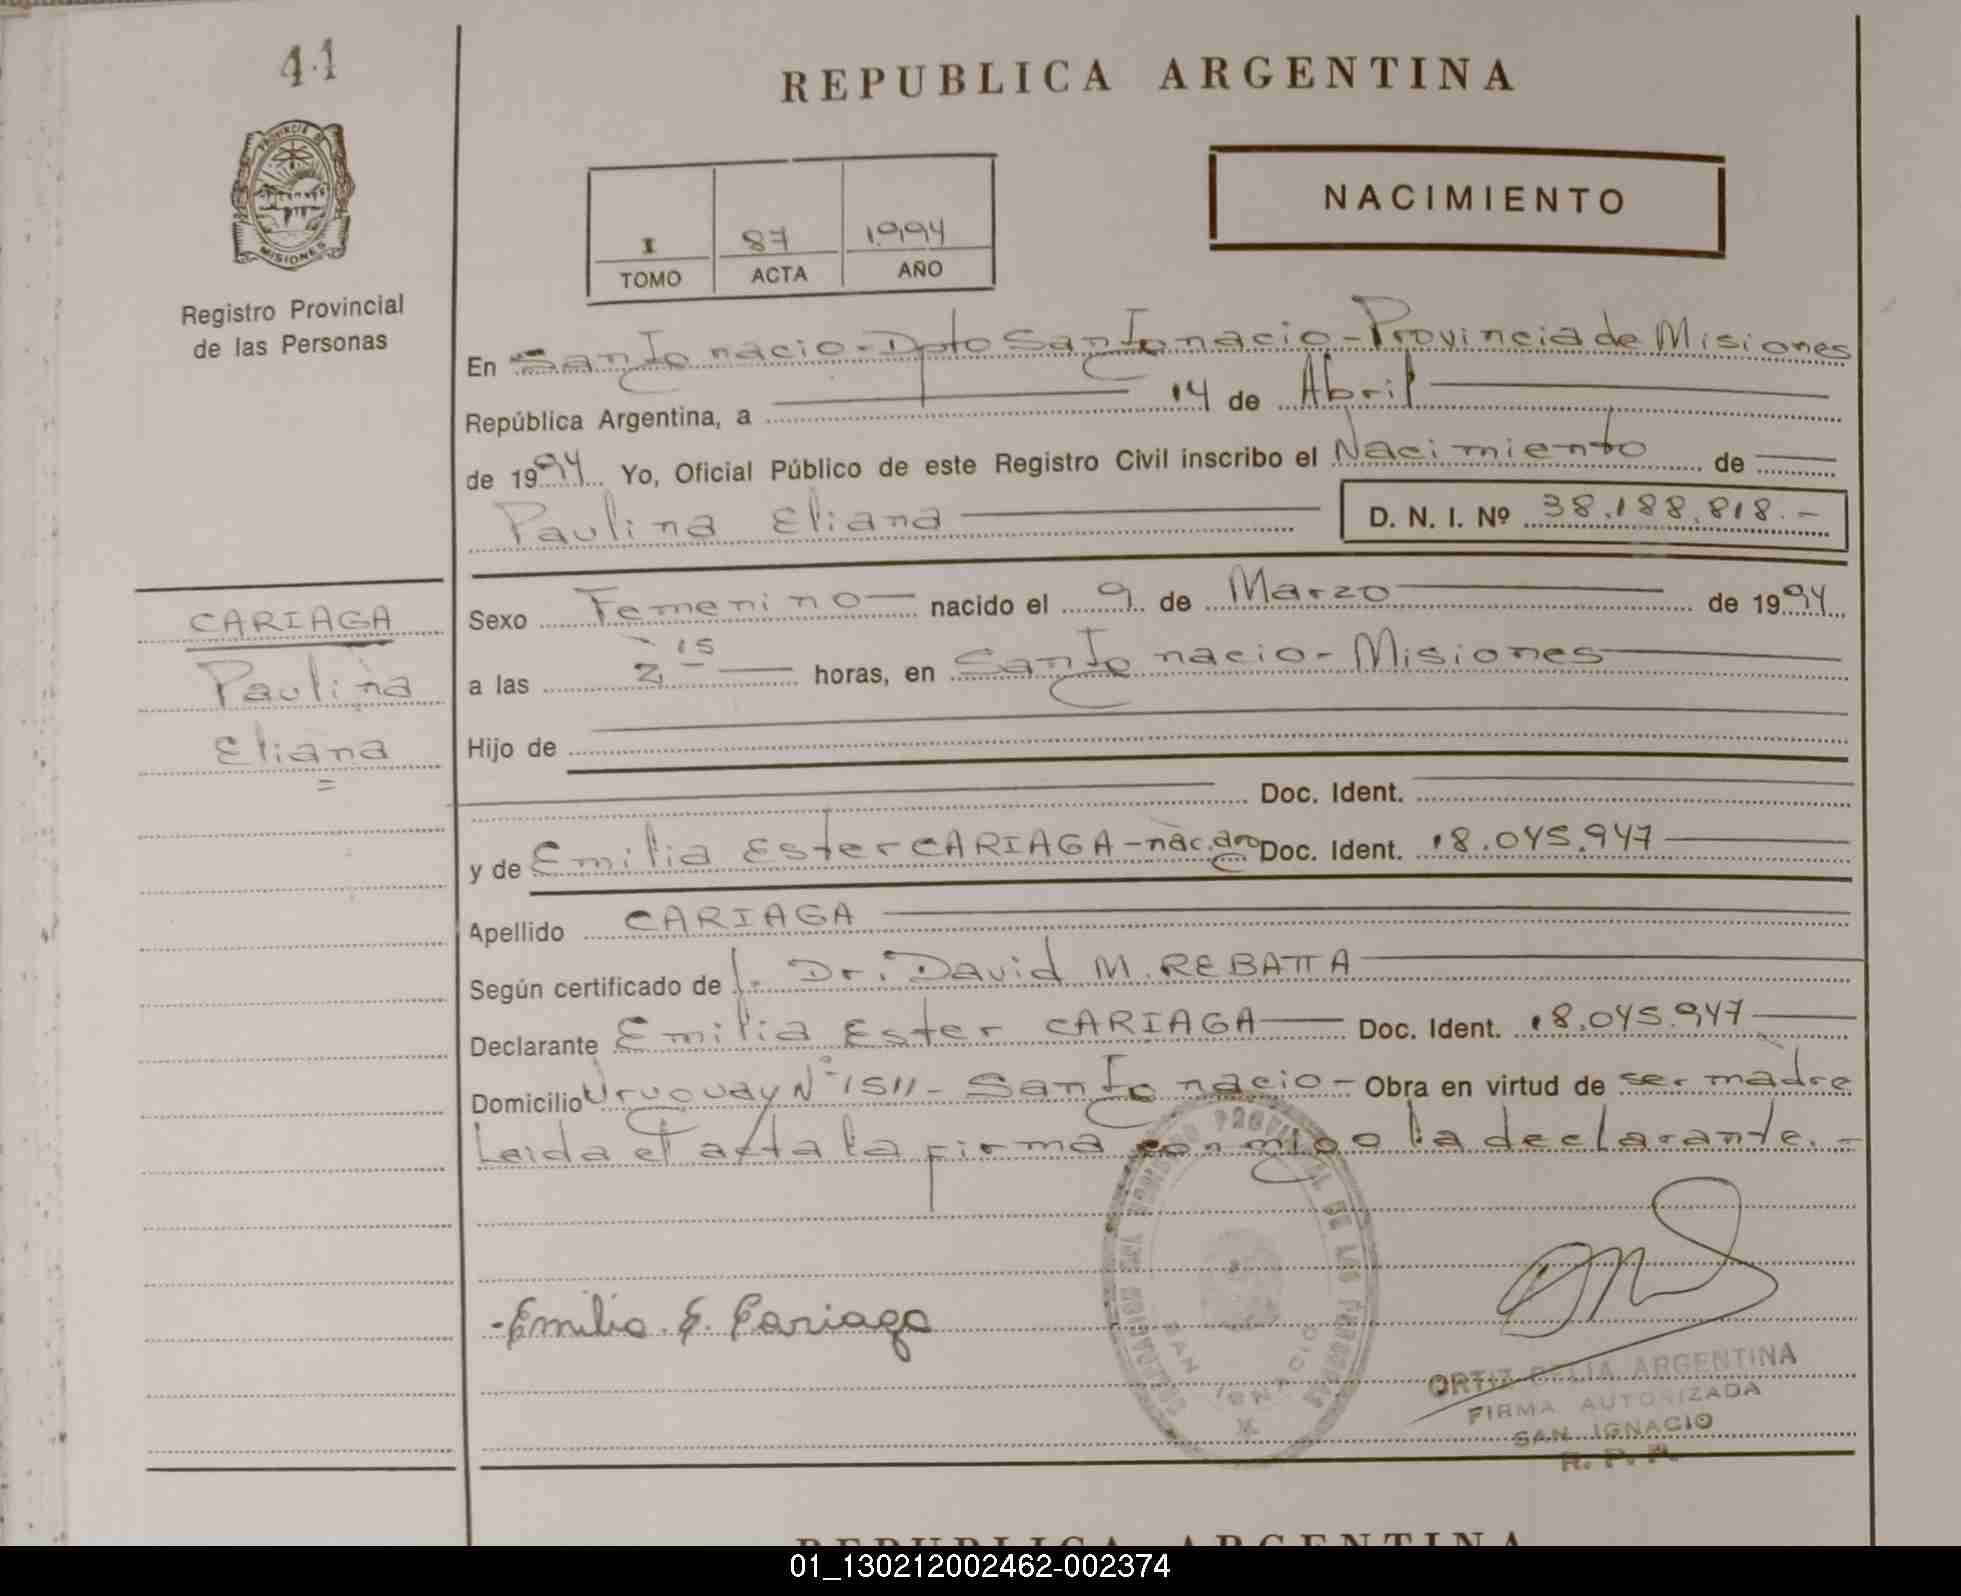 41
REPUBLICA ARGENTINA
PROVINCIA DE
MISIONES
NACIMIENTO
I 87 1994
TOMO ACTA AÑO
Registro Provincial
de las Personas
En San Ignacio - Dpto San Ignacio - Provincia de Misiones
República Argentina, a 14 de Abril
de 1994 Yo, Oficial Público de este Registro Civil inscribo el Nacimiento de
Paulina Eliana D. N. I. Nº 38.188.818.-
CARIAGA
Paulina
Eliana
Sexo Femenino nacido el 9 de Marzo de 1994
a las 2 15 horas, en San Ignacio - Misiones
Hijo de
Doc. Ident.
y de Emilia Ester CARIAGA - nac. arg Doc. Ident. 18.045.947
Apellido CARIAGA
Según certificado de l. Dr. David M. REBATTA
Declarante Emilia Ester CARIAGA Doc. Ident. 18.045.947
Domicilio Uruguay Nº 1511 - San Ignacio - Obra en virtud de ser madre
Leida el acta la firma conmigo la declarante.-
PROVINCIAL DE LAS PERSONAS
SAN IGNACIO
-Emilia E. Cariaga
ORTIZ DELIA ARGENTINA
FIRMA AUTORIZADA
SAN IGNACIO
R. P. P.
REPUBLICA ARGENTINA
01_130212002462-002374